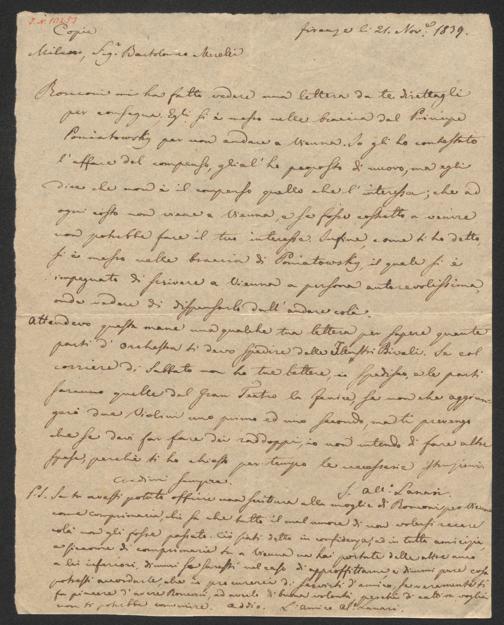 Copia
firenze li 21. Nov.e 1839.
Milano, Sig.r Bartolomeo Merelli
Ronconi mi ha fatto vedere una lettera da te direttagli
per consegna. Egli si è messo nelle braccia del Principe
Poniatowsky per non andare a Vienna. Io gli ho contestato
l'affare del compenso, gliel'ho proposto di nuovo, ma egli
dice che non è il compenso quello che l'interessa; che ad
ogni costo non viene a Vienna, e se fosse costretto a venire
non potrebbe fare il tuo interesse. Infine come ti ho detto,
si è messo nelle braccia di Poniatowsky, il quale si è
impegnato di scrivere a Vienna a persona autorevolissima,
onde vedere di dispensarlo dall'andare colà.
Attendevo questa mane una qualche tua lettera per sapere quante
parti d'orchestra ti devo spedire delle Illustri Rivali. Se col
corriere di Sabbato non ho tue lettere, io spedisco, e le parti
saranno quelle del Gran Teatro la fenice, se non che aggiun-
gerò due Violini uno primo ed uno secondo, ma ti prevengo
che se devi far fare dei raddoppi, io non intendo di fare altre
spese, perchè ti ho chiesto per tempo le necessarie istruzioni.
Credimi sempre.
S. Al. Lanari.
P.S. Se tu avessi potuto offrire una scrittura alla moglie di Ronconi per Vienna
come comprimaria, chi sa che tutto il mal umore di non volersi recare
colà non gli fosse passato. Ciò sia detto in confidenza, ed in tutta amicizia
e siccome di comprimarie tu a Vienna ne hai portate delle altre anco
a lei inferiori, dimmi se saresti nel caso di approffittarne e dimmi pure cosa
potresti accordarle, che io procurerei di servirti d'amico, se veramente ti
fa piacere d'avere Ronconi, ed averlo di buona volontà, perchè di cattiva voglia
non ti potrebbe convenire. Addio. L'amico Al. Lanari.